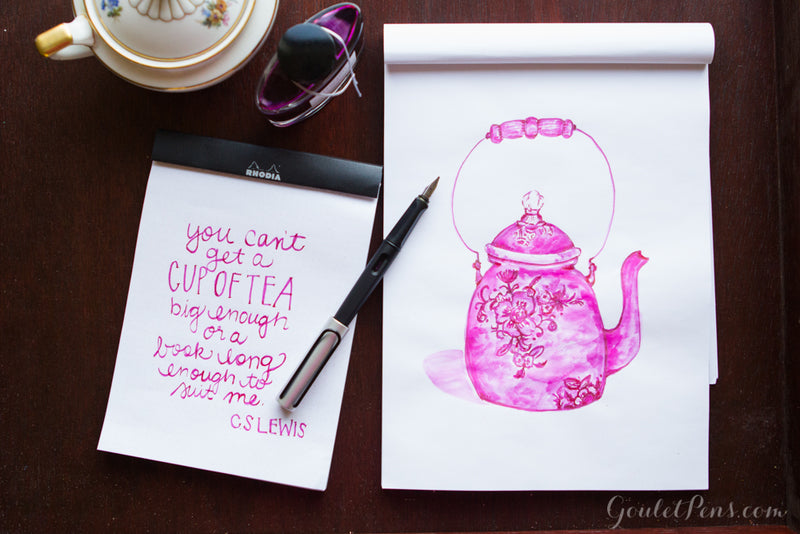 RHODIA
you can't
get a
CUP OF TEA
big enough
or a
book long
enough to
suit me.
CS LEWIS
GouletPens.com